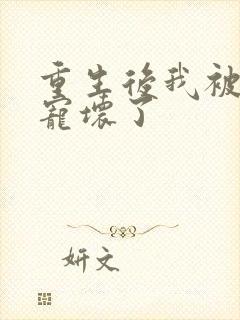 重生後我被
寵壞了
妍文